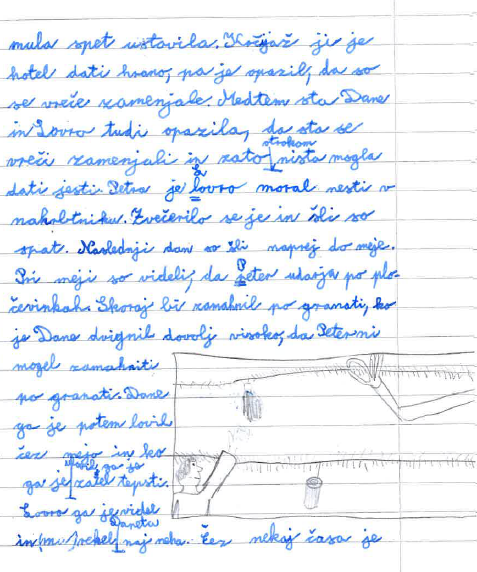 mula spet ustavila. Kočijaž ji je
hotel dati hrano, pa je opazil, da so
se vreče zamenjale. Medtem sta Dane
in Lovro tudi opazila, da sta se
vreči zamenjali in zato otrokom nista mogla
dati jesti. Petra je Lovro moral nesti v
nahrbtniku. Zvečerilo se je in šli so
spat. Naslednji dan so šli naprej do meje.
Pri meji so videli, da Peter udarja po plo-
čevinkah. Skoraj bi zamahnil po granati, ko
je Dane dvignil dovolj visoko, da Peter ni
mogel zamahniti
po granati. Dane
ga je potem lovil
čez mejo in ko
ga je ulovil, ga je začel tepsti.
Lovro ga je videl
in (mu) rekel Danetu naj neha. Čez nekaj časa je